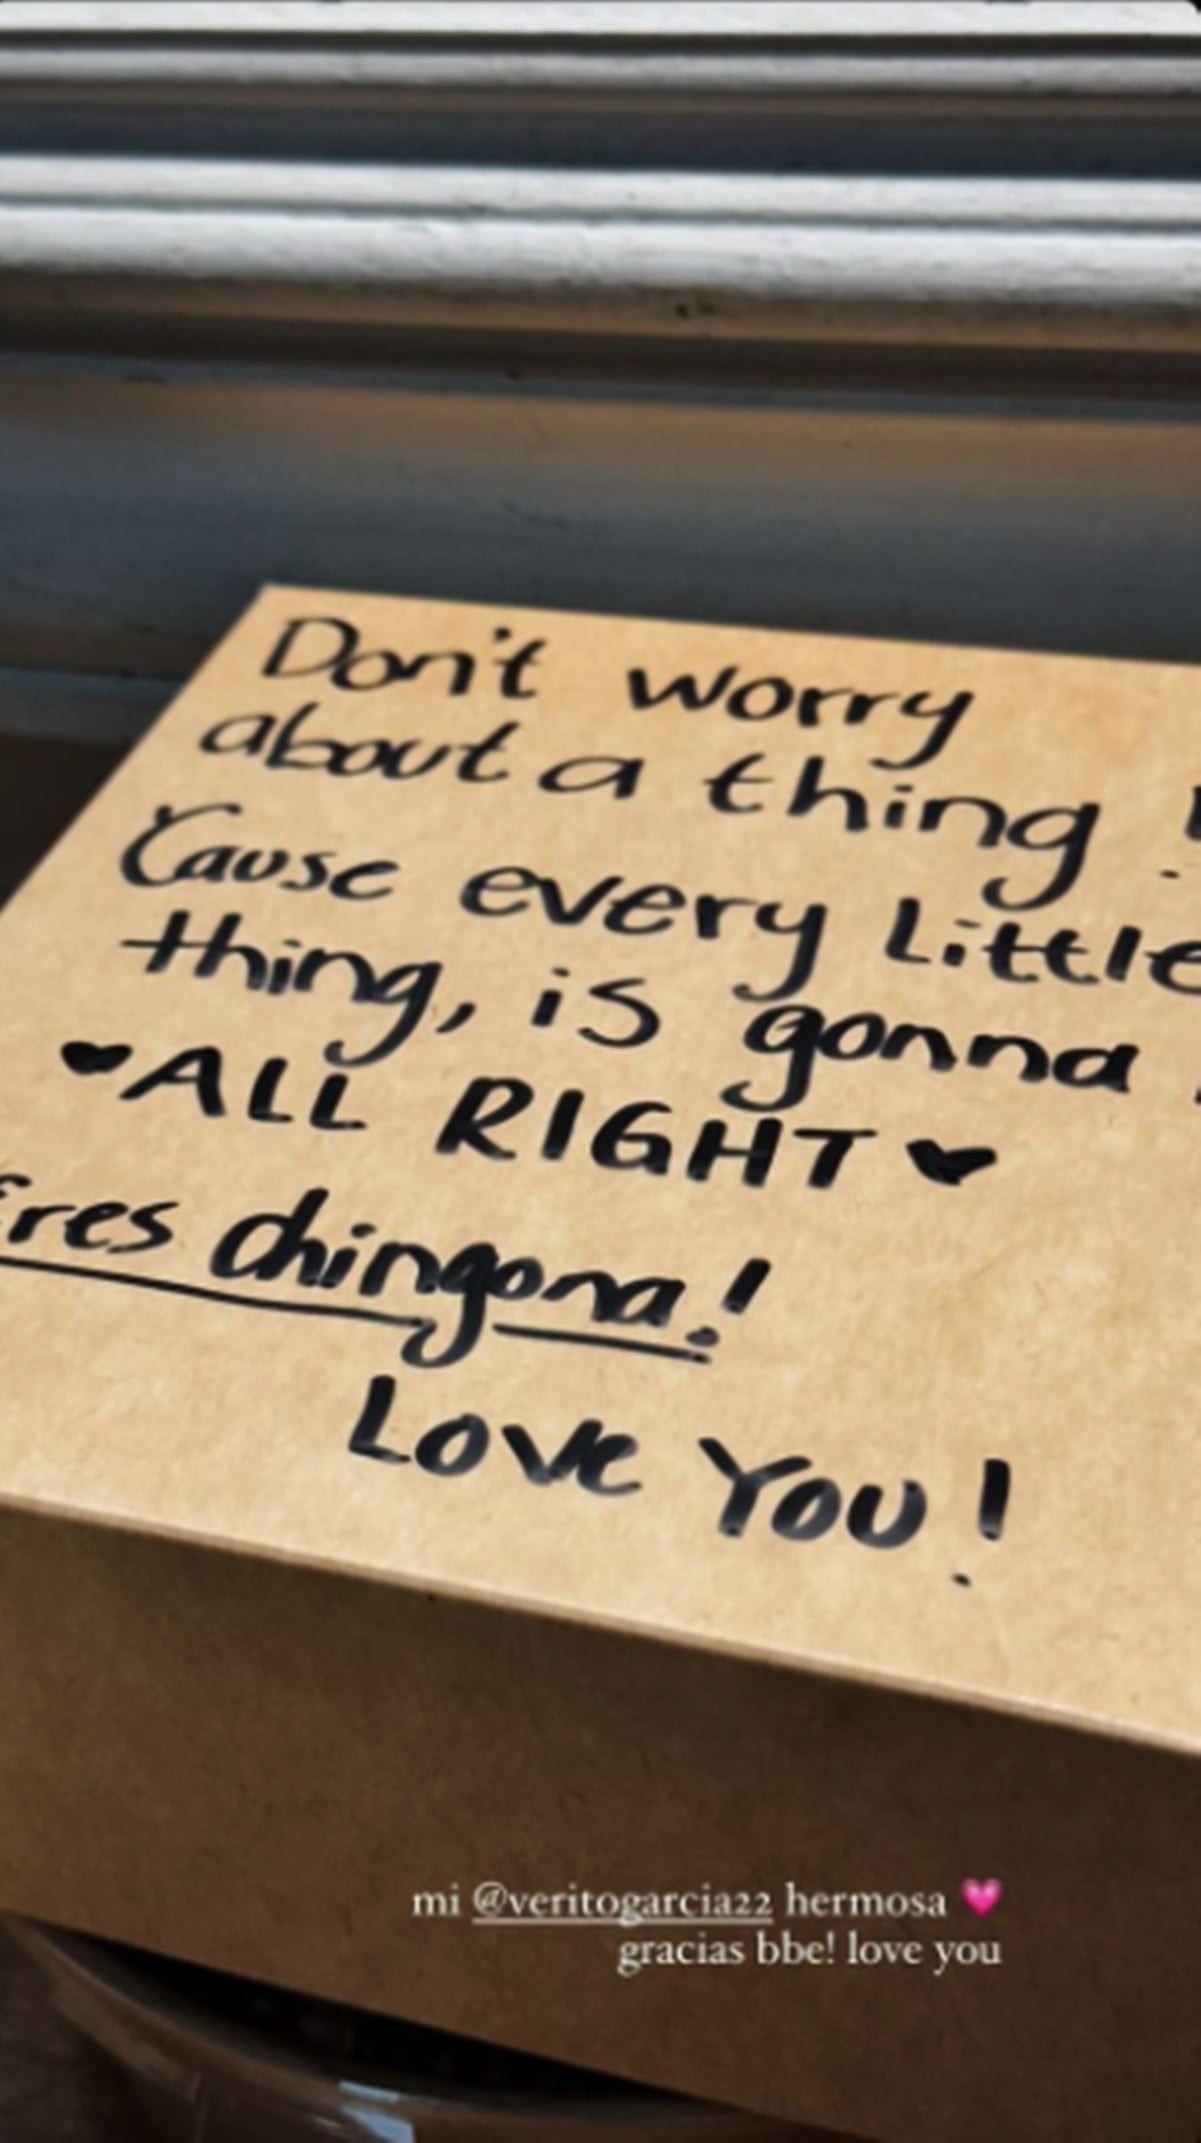 Don't worry
about a thing !
'Cause every little
thing, is gonna
♥ALL RIGHT♥
Eres chingona!
Love You!
mi @veritogarcia22 hermosa 💗
gracias bbe! love you